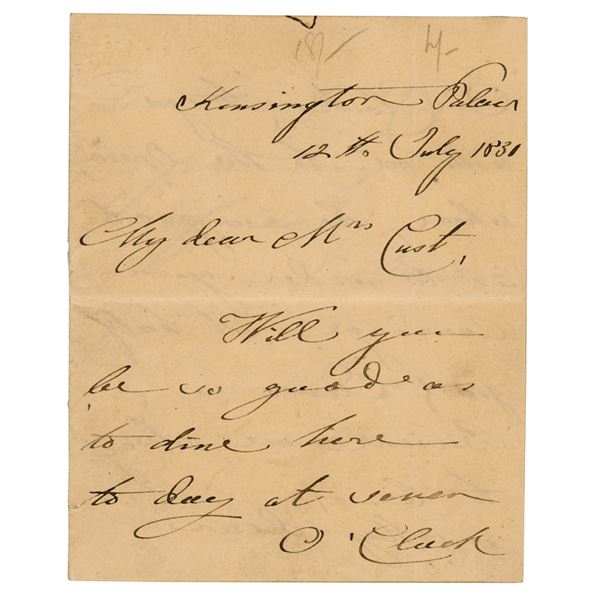 18/- 4/-
Kensington Palace
12th July 1831
My dear Mrs Cust,
Will you
be so good as
to dine here
to day at seven
O'Clock